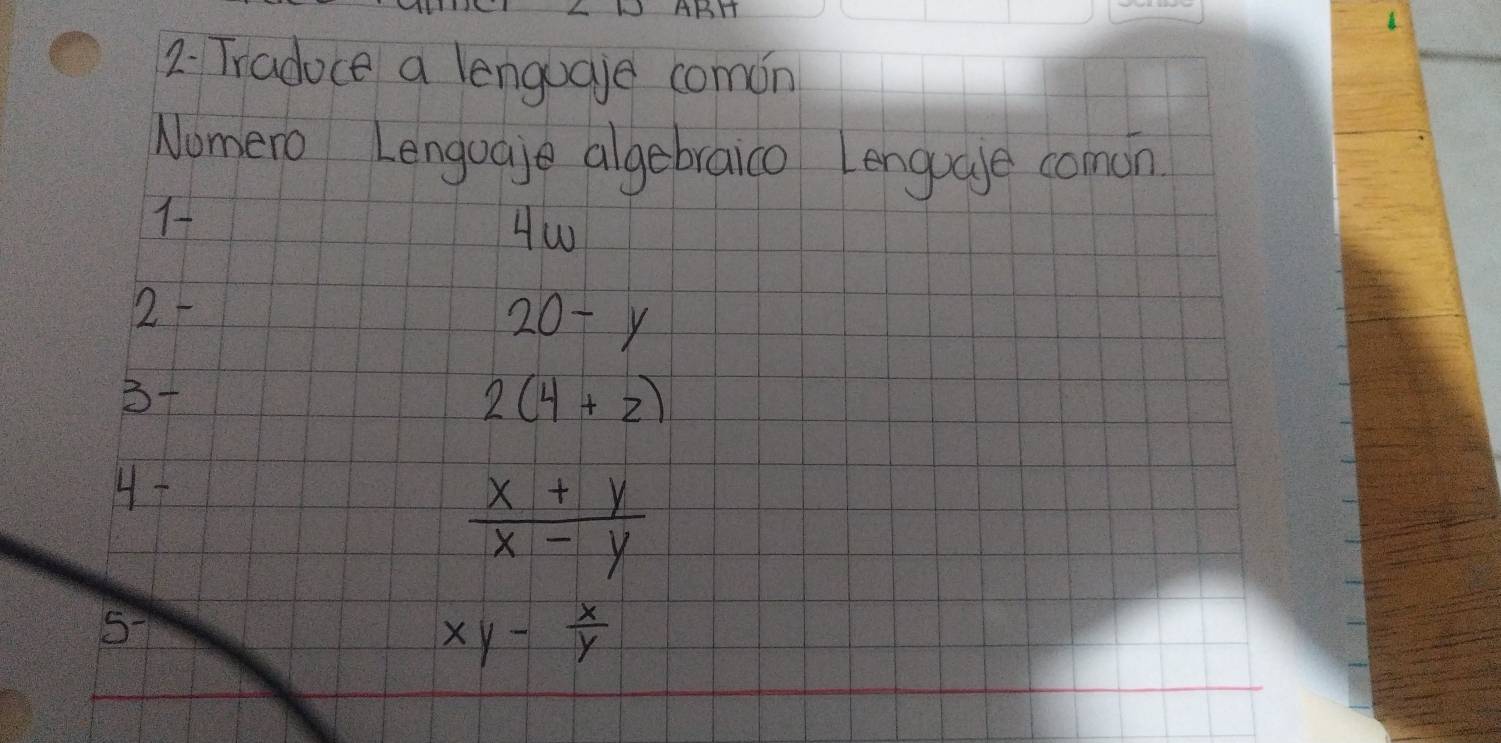 2- Traduce a lenguaje común
Número Lenguaje algebraico Lenguaje común.
1- 4w
2- 20 - y
3- 2(4 + z)
4- x + y
x - y
5- xy - x/y